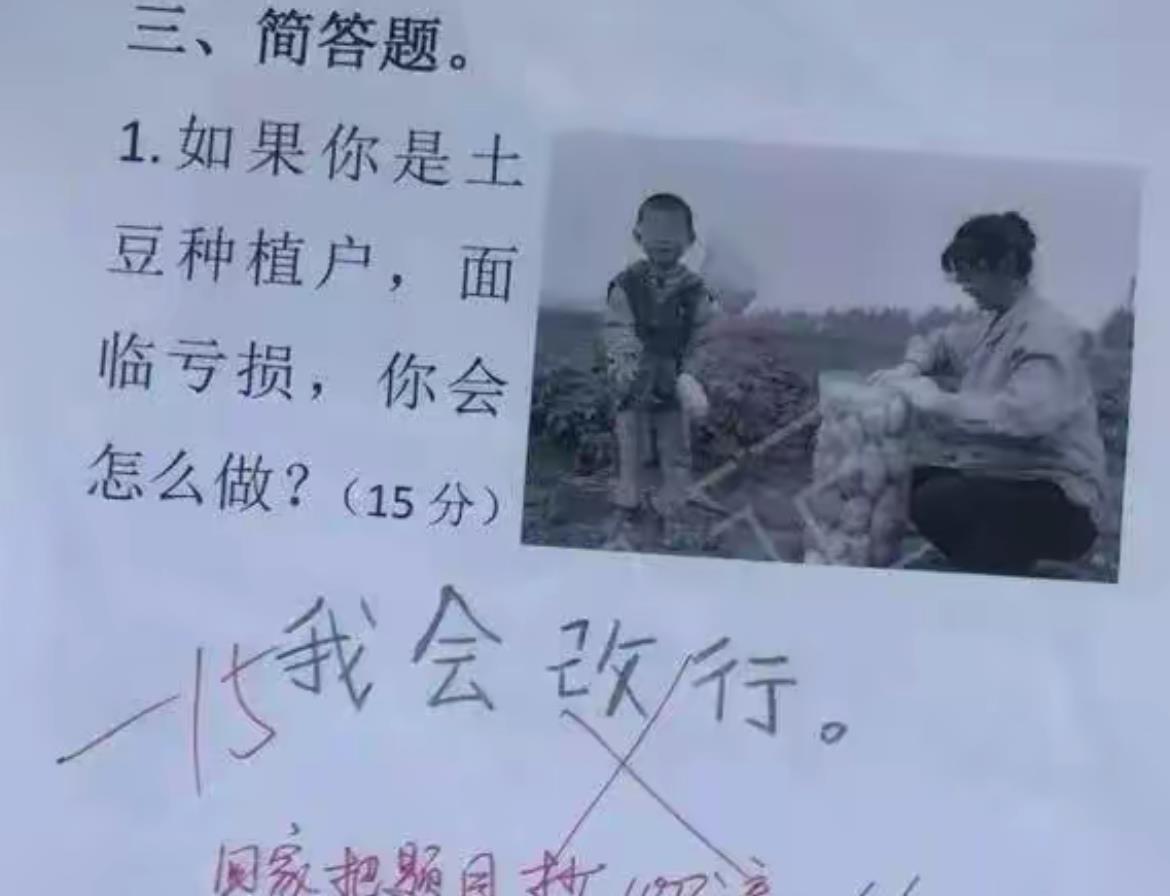 三、简答题。
1.如果你是土
豆种植户，面
临亏损，你会
怎么做？（15分）
我会改行。
-15
回家把题目抄100遍